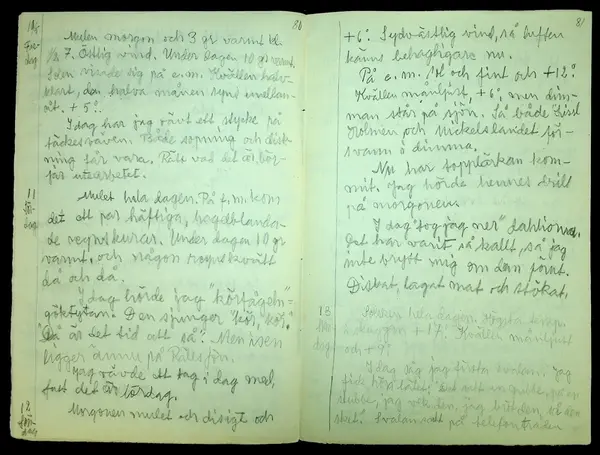 80
Mulen morgon och 3 gr varmt kl.
7. Östlig vind. Under dagen 10 gr varmt.
Solen visade sig på e.m. Kvällen halv-
klart, den halva månen syns emellan-
åt. + 5°.
I dag har jag vävt ett stycke på
täckesväven. Både sopning och disk-
ning får vara. Rätt vad det är bör-
jar utearbetet.
11
Mulet hela dagen. På f.m. kom
det ett par häftiga, hagelblanda-
de regnskurar. Under dagen 10 gr
varmt, och någon regnskvätt
då och då.
I dag hörde jag "körfågeln" =
göktytan. Den sjunger "kör, kör."
"Då är det tid att så". Men isen
ligger ännu på
Jag vävde ett tag i dag med,
fast det är lördag.
12
Morgonen mulet och disigt och
81
+6°. Sydvästlig vind, så luften
känns behagligare nu.
På e.m. kl och fint och +12°
Kvällen månljust, +6°, men dim-
man står på sjön. Så både
Holmen och Mickelslandet för-
svann i dimma.
Nu har topplärkan kom-
mit. Jag hörde hennes drill
på morgonen.
I dag "tog jag ner" dahliorna.
Det har varit så kallt, så jag
inte brytt mig om dem förut.
Diskat, lagat mat och stökat.
13
hela dagen. Högsta tempe-
+17°. Kvällen månljust
och +9°.
I dag såg jag första svalan. Jag
stubbe, jag
Svalan satt på telefontråden